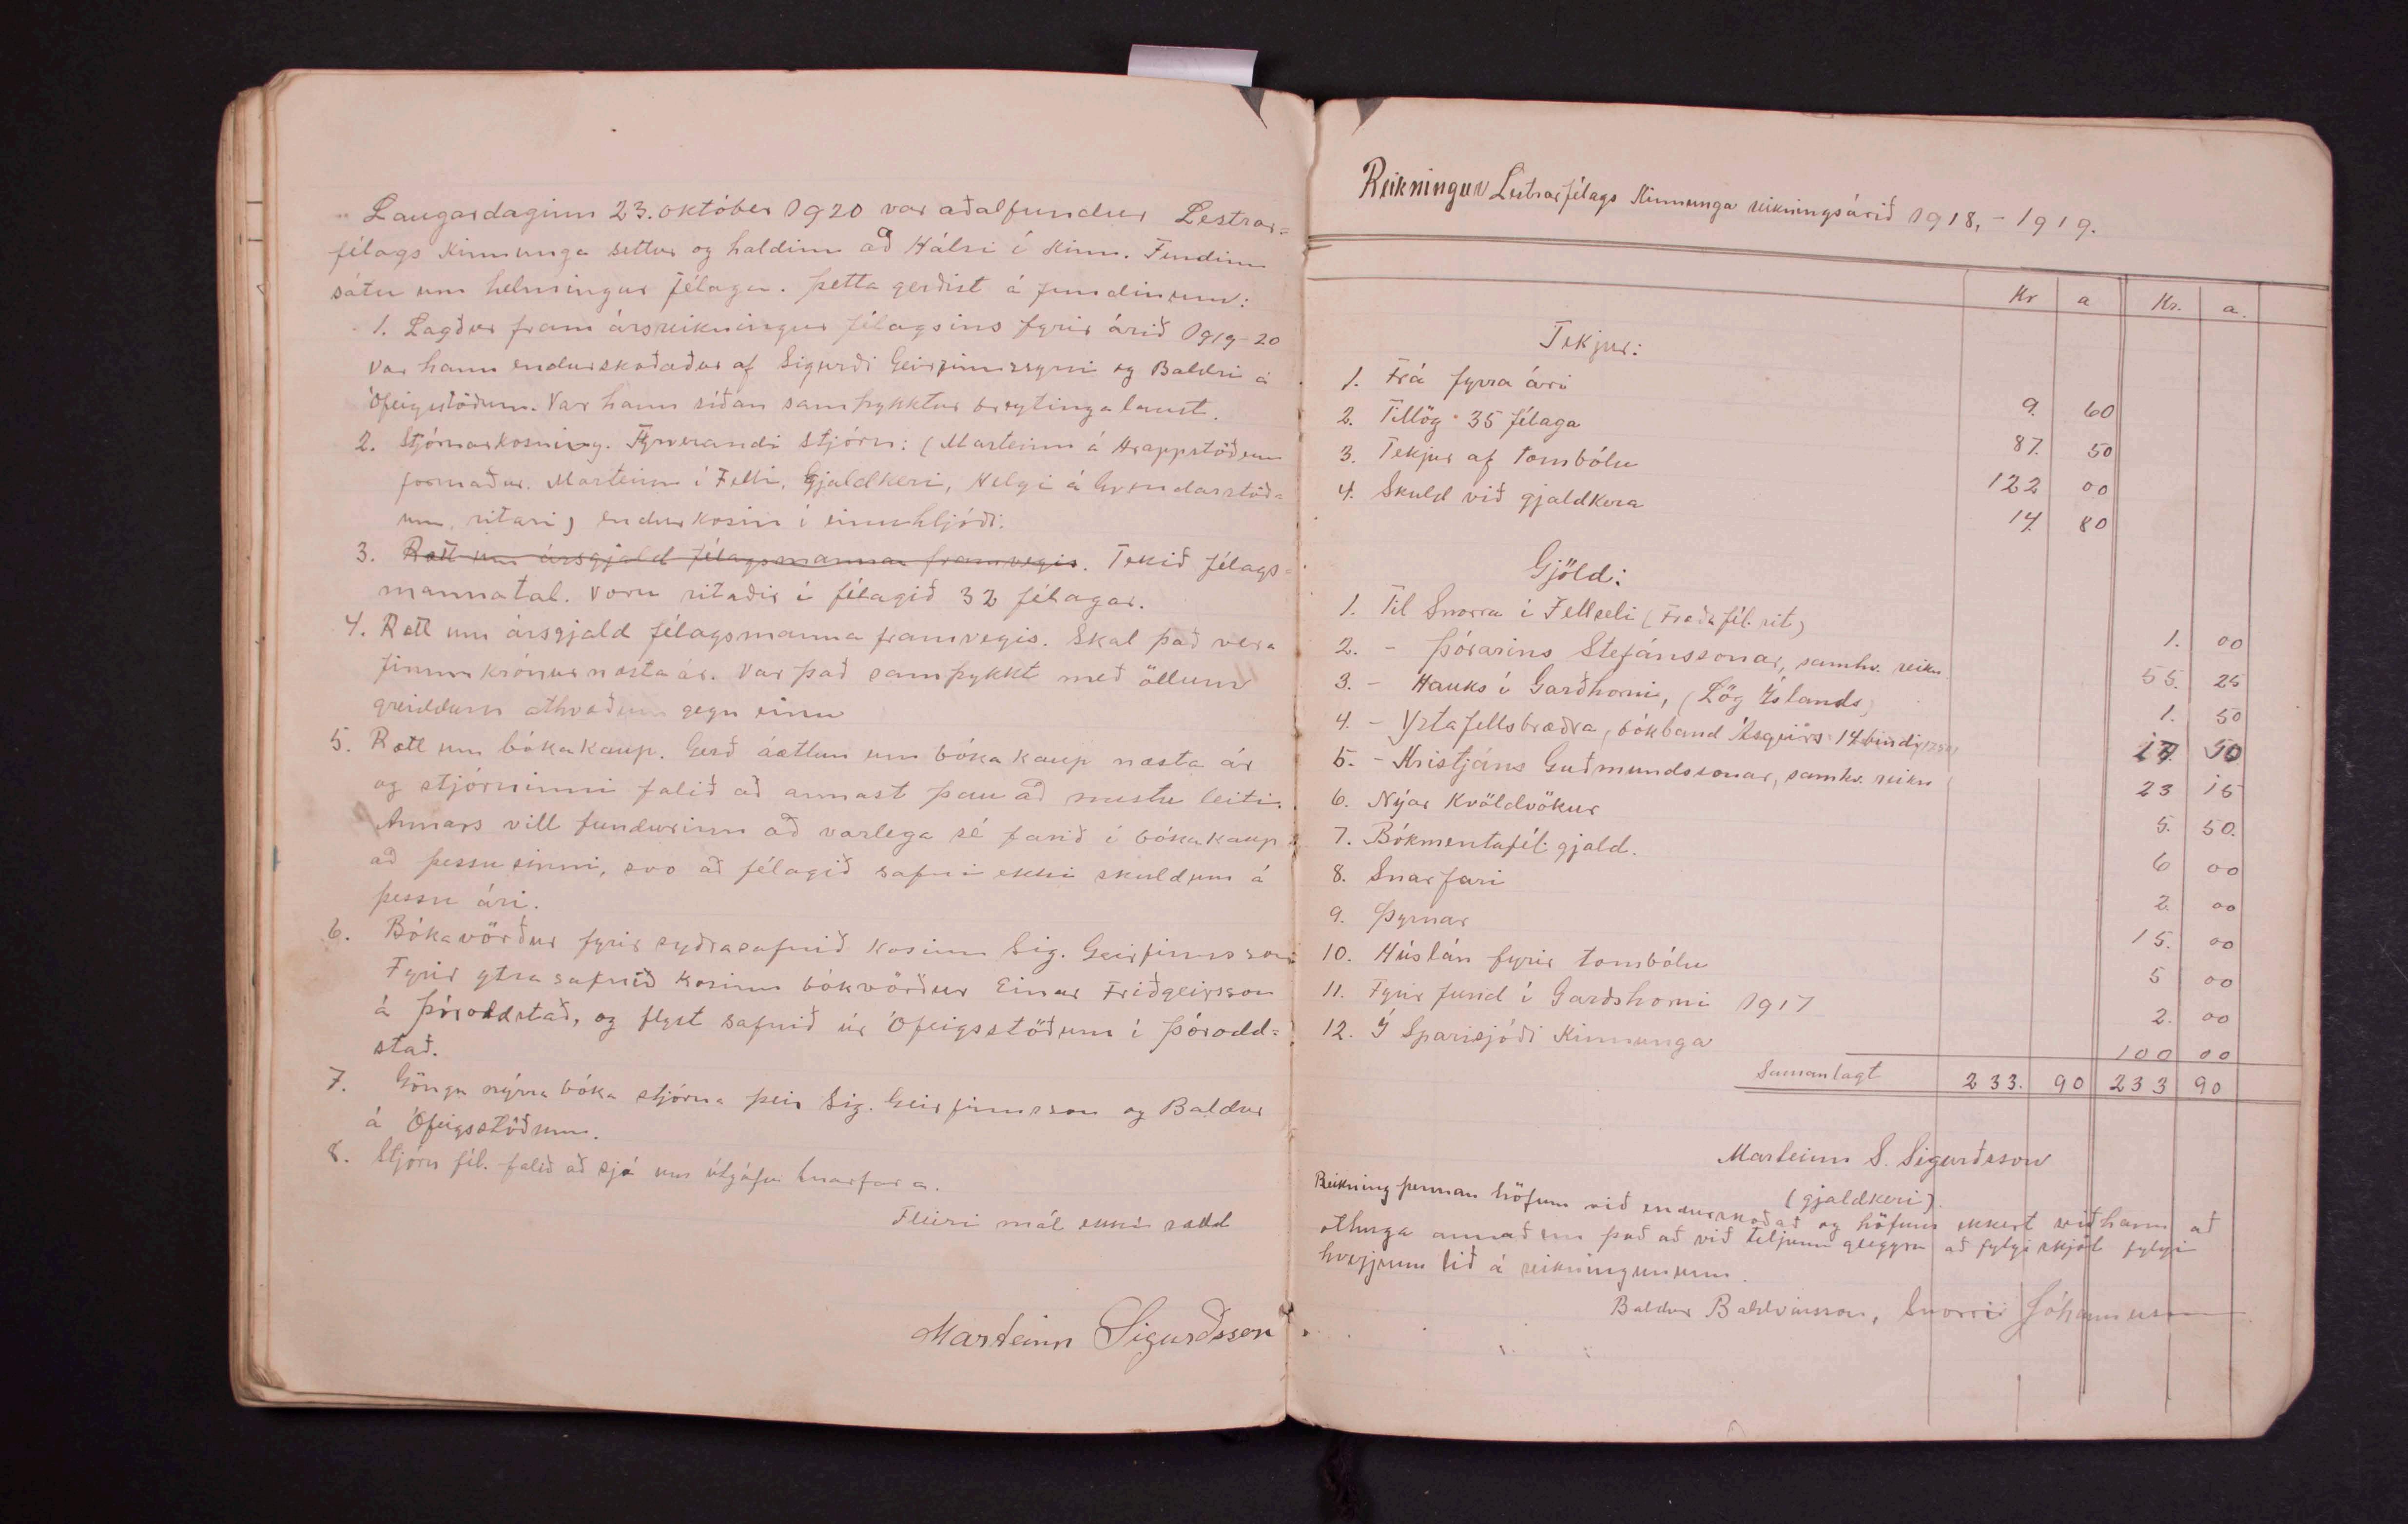 Laugardaginn 23. október 1920 var aðalfundur Lestrar=
félags Kinnunga settur og haldinn að Hálsi í Kinn. Fundinn
sátu um helmingur félaga. Þetta gerðist á fundinum:
1. Lagður fram ársreikningur félagsins fyrir árið 1919-20
var hann endurskoðaður af Sigurði Geirfinnssyni og Baldri á
Ófeigsstöðum. Var hann síðan samþykktur breytingalaust.
2. Stjórnarkosning. Fyrverandi stjórn: (Marteinn á Hrappstöðum
formaður. Marteinn í Felli, Gjaldkeri, Helgi á Gvendarstöð=
um, ritari) endurkosin í einuhljóði.
3. Rætt um ársgjald félagsmanna framvegis. Tekið félags=
mannatal. Voru ritaðir í félagið 32 félagar.
4. Rætt um ársgjald félagsmanna framvegis. Skal það vera
fimm krónur næsta ár. Var það samþykkt með öllum
greiddum atkvæðum gegn einu
5. Rætt um bókakaup. Gerð áætlun um bóka kaup næsta ár
og stjórninni falið að annast þau að mestu leiti.
Annars vill fundurinn að varlega sé farið í bókakaup
að þessu sinni, svo að félagið safni ekki skuldum á
þessu ári.
6. Bókavörður fyrir syðrasafnið kosinn Sig. Geirfinnsson
Fyrir ytra safnið kosinn bókvörður Einar Friðgeirsson
á Þóroddstað, og flyst safnið úr Ófeigsstöðum í Þórodd=
stað.
7. Göngu nýrra bóka stjórna þeir Sig. Geirfinnsson og Baldur
á Ófeigsstöðum.
8. Stjórn fél. falið að sjá um útgáfu Snarfara.
Fleiri mál ekki rædd
Marteinn Sigurðsson
Reikningur Lestrarfélags Kinnunga reikningsárið 1918,-1919.
Kr a Kr. a.
Tekjur:
1. Frá fyrra ári 9. 60
2. Tillög 35 félaga 87. 50
3. Tekjur af tombólu 122 00
4. Skuld við gjaldkera 14. 80
Gjöld:
1. Til Snorra í Fellseli (Fræðafél. rit) 1. 00
2. - Þórarins Stefánssonar, samhv. reikn. 55. 25
3. - Hauks í Garðhorni, (Lög Íslands) 1. 50
4. - Ystafellsbræðra, bókband Ásgeirs 14 bindi 17. 50
5. - Kristjáns Guðmundssonar, samkv. reikn 23 15
6. Nýar Kvöldvökur 5. 50.
7. Bókmentafél. gjald. 6 00
8. Snarfari 2. 00
9. Þyrnar 15. 00
10. Húslán fyrir tombólu 5 00
11. Fyrir fund í Garðshorni 1917 2. 00
12. Í Sparisjóði Kinnunga 100 00
Samanlagt 233. 90 233 90
Marteinn S. Sigurðsson
(gjaldkeri)
Reikning þennan höfum við endurskoðað og höfum ekkert við hann að
athuga annað en það að við teljum gleggra að fylgiskjöl fylgi
hverjum lið á reikningunum.
Baldur Baldvinsson, Snorri Jóhannesson